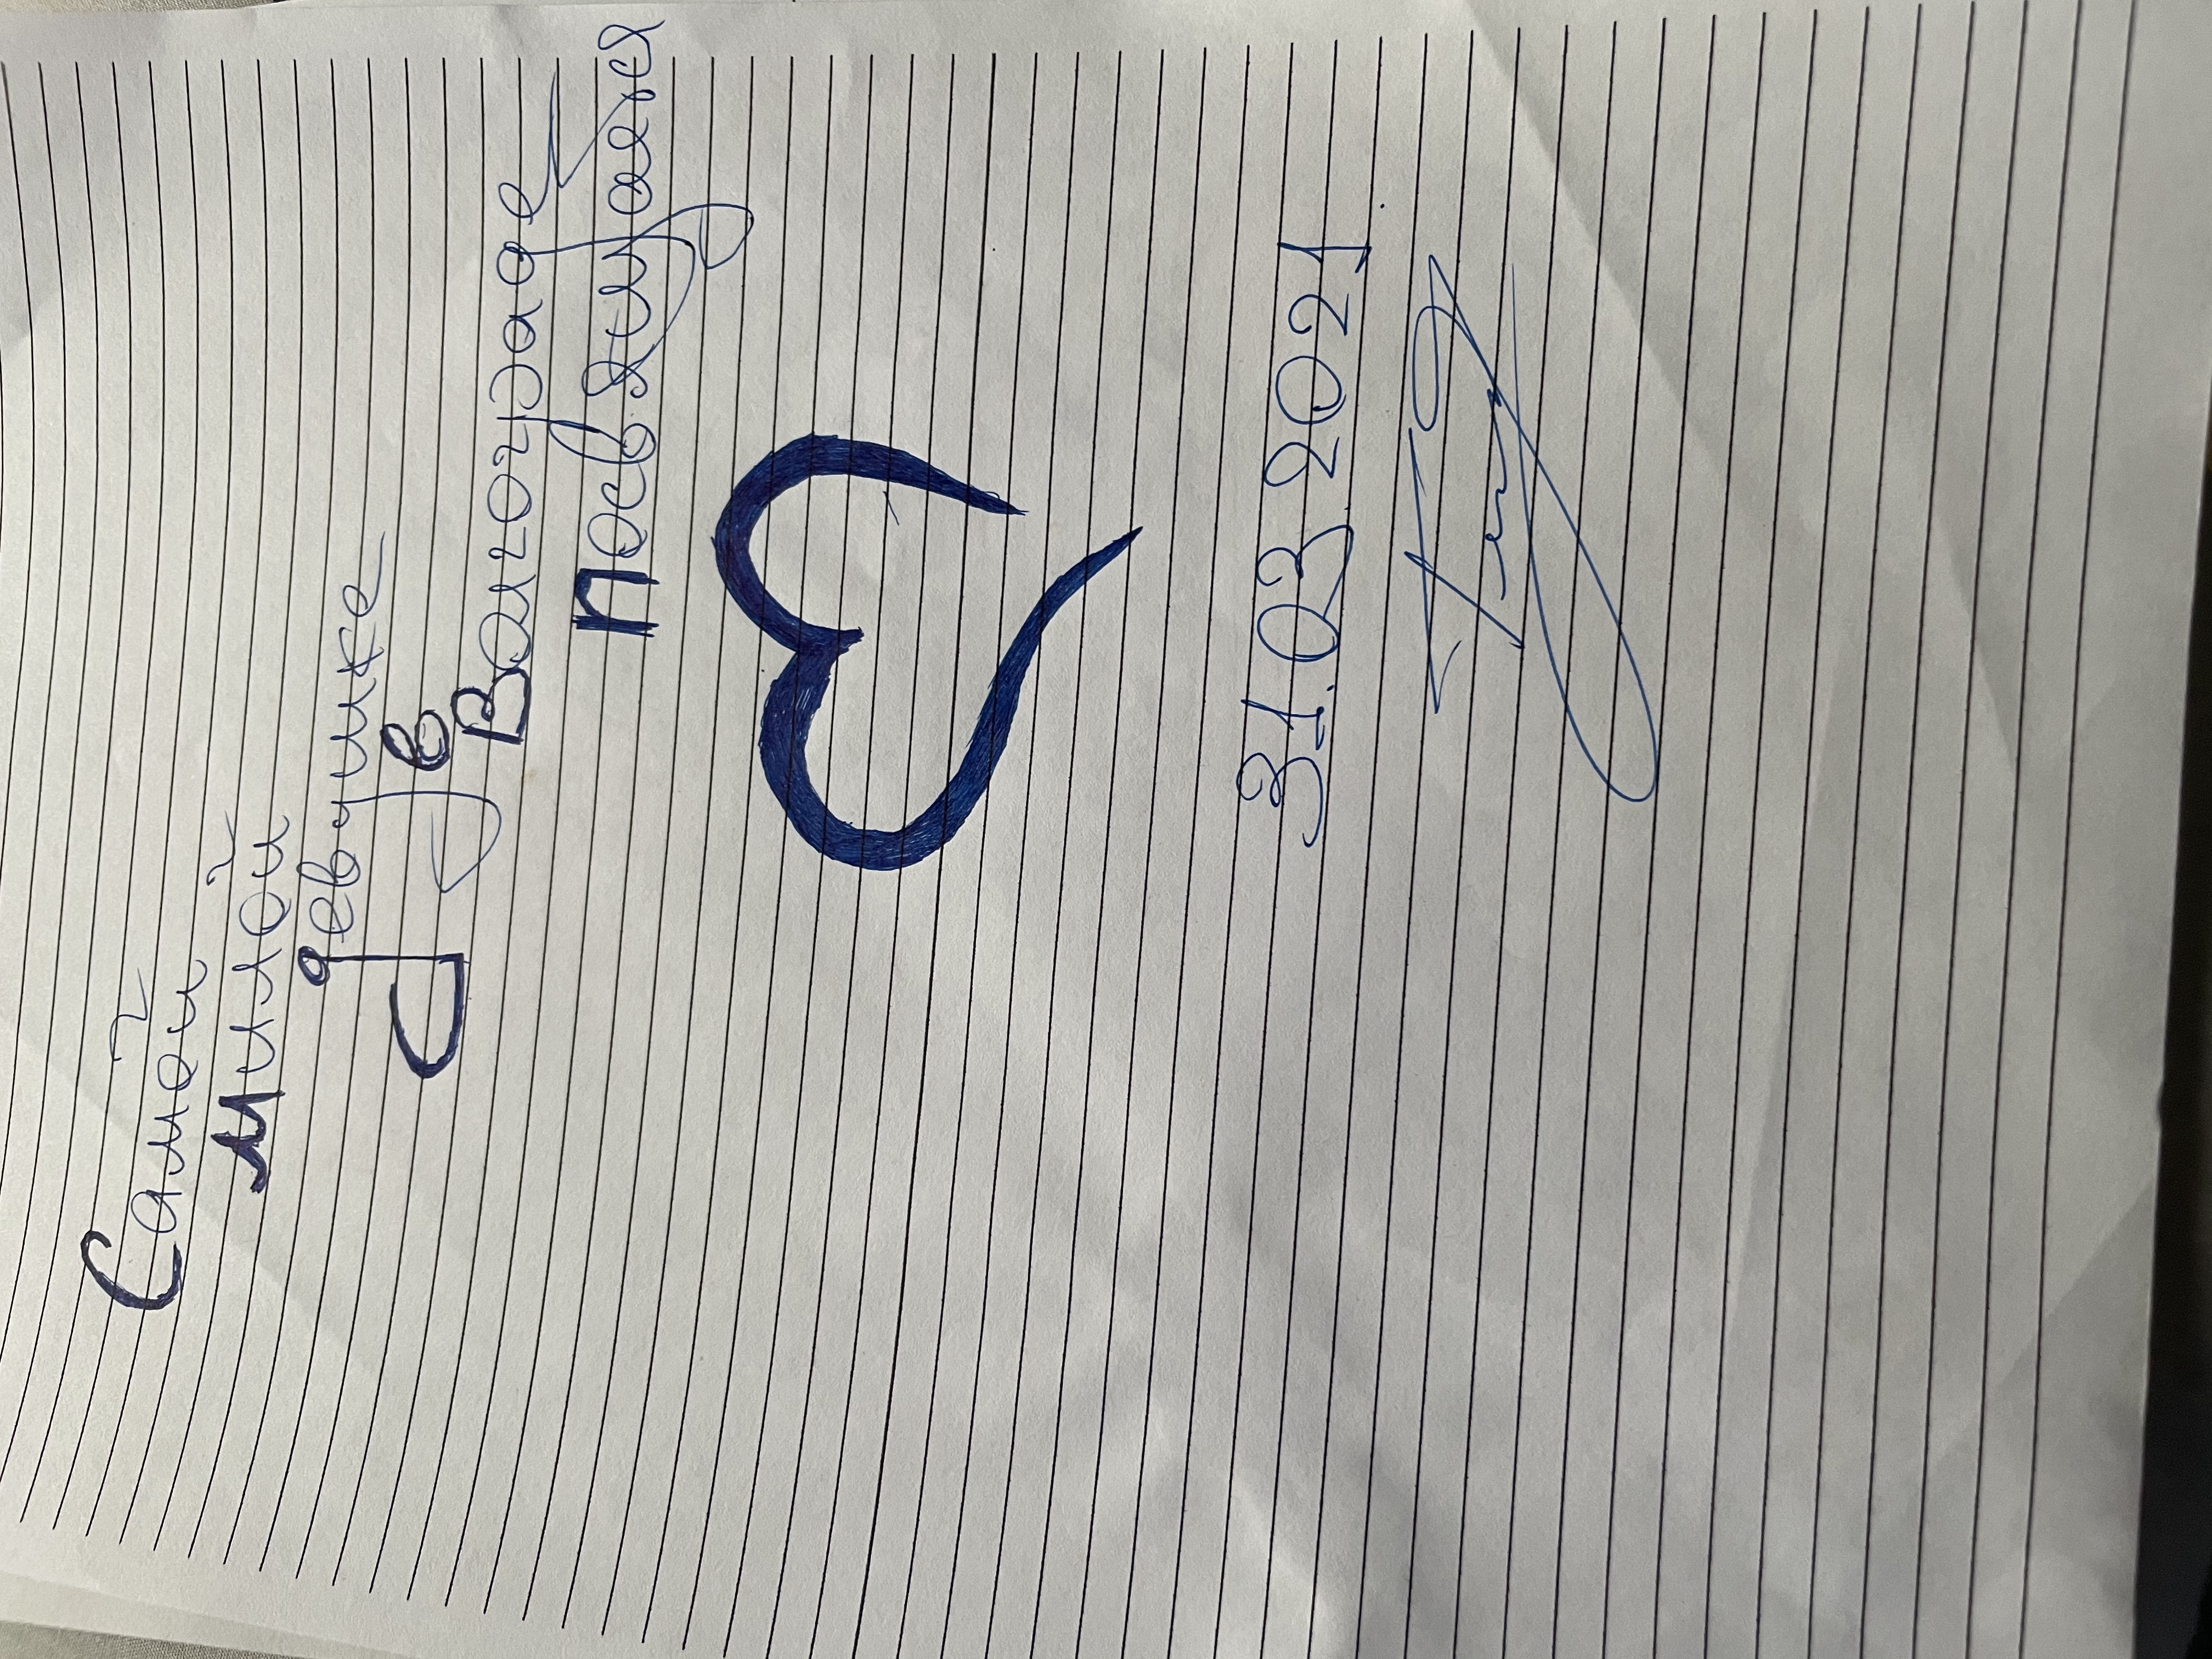 Самой
милой
девушке
в
Волгограде
посвящается
31.03.2021